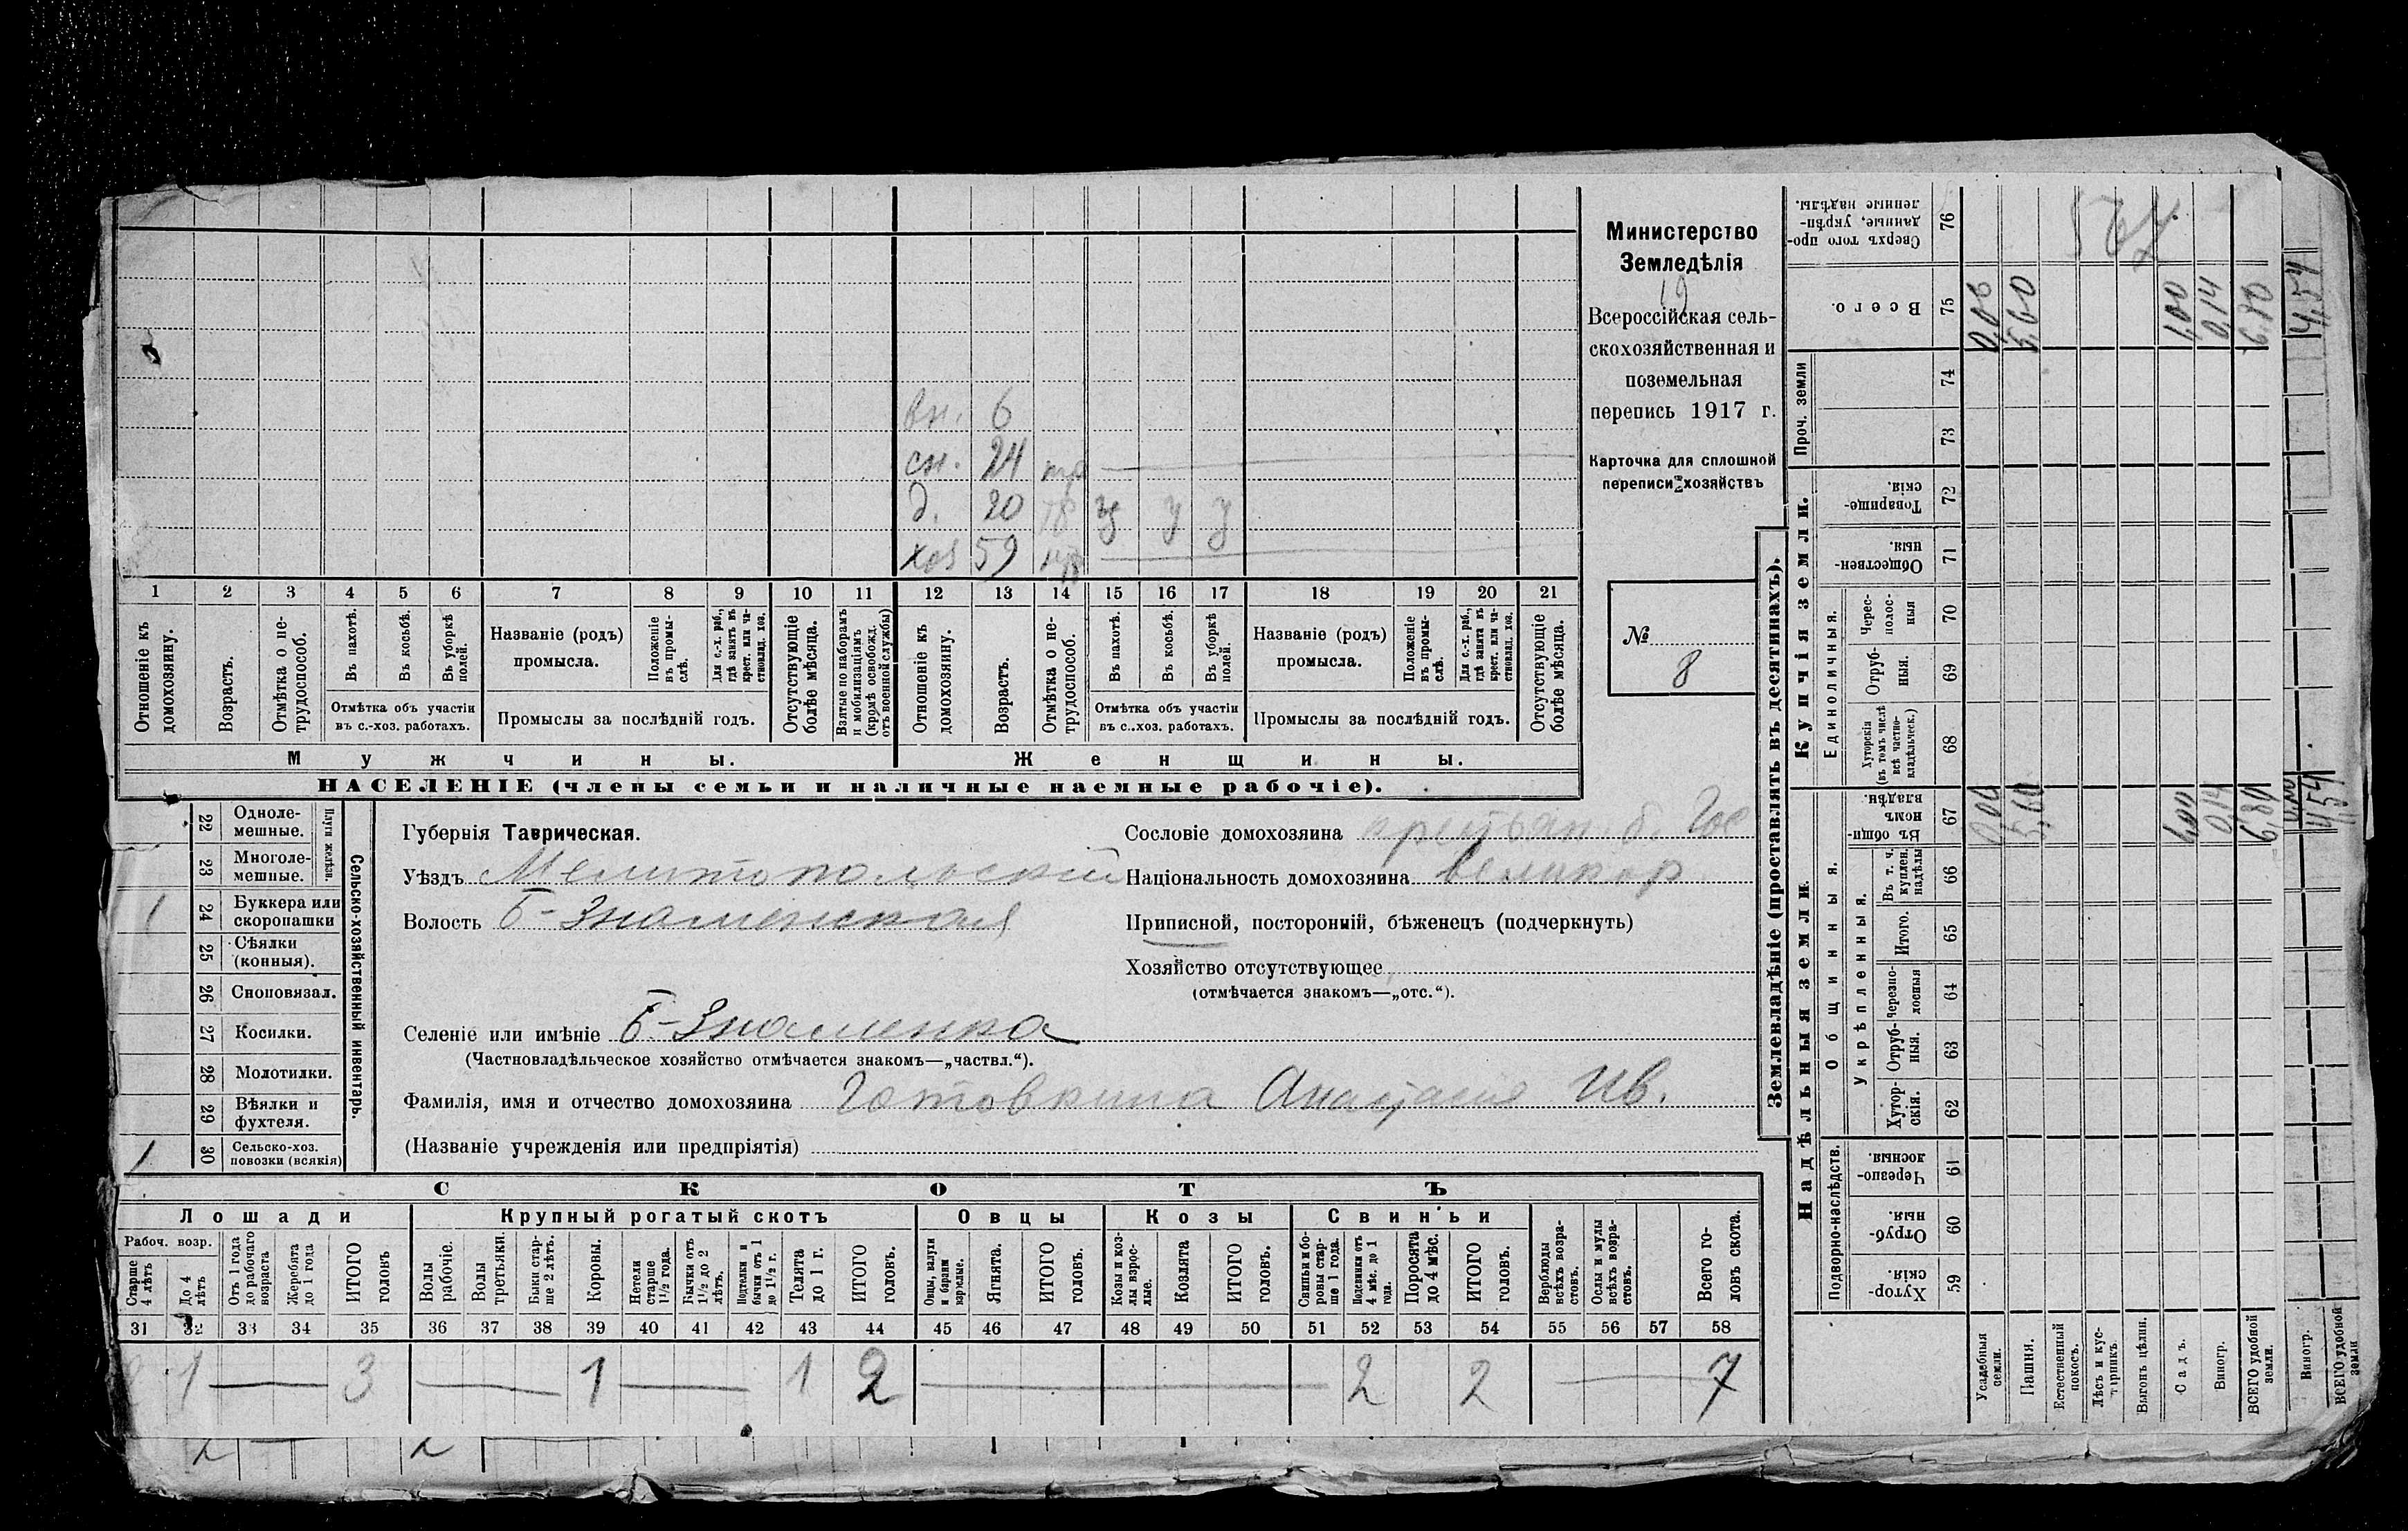 Министерство
Земледѣлія
19
Всероссійская сель-
скохозяйственная и
поземельная
перепись 1917 г.
Карточка для сплошной
переписи хозяйствъ
№
8
вн. 6
сн. 24
д. 20 у у
хоз 59
1 2 3 4 5 6 7 8 9 10 11 12 13 14 15 16 17 18 19 20 21
Отношеніе къ домохозяину.
Возрастъ.
Отмѣтка о не-трудоспособ.
Въ пахотѣ.
Въ косьбѣ.
Въ уборкѣ полей.
Отмѣтка объ участіи въ с.-хоз. работахъ.
Названіе (родъ) промысла.
Положеніе въ промы-слѣ.
Для с.-х. раб., гдѣ занятъ въ крест. или ча-стновлад. хоз.
Промыслы за послѣдній годъ.
Отсутствующіе болѣе мѣсяца.
Взятые по наборамъ и мобилизаціямъ (кромѣ освобожд. отъ военной службы)
Отношеніе къ домохозяину.
Возрастъ.
Отмѣтка о не-трудоспособ.
Въ пахотѣ.
Въ косьбѣ.
Въ уборкѣ полей.
Отмѣтка объ участіи въ с.-хоз. работахъ.
Названіе (родъ) промысла.
Положеніе въ промы-слѣ.
Для с.-х. раб., гдѣ занята въ крест. или ча-стновлад. хоз.
Промыслы за послѣдній годъ.
Отсутствующіе болѣе мѣсяца.
Мужчины.
Женщины.
НАСЕЛЕНІЕ (члены семьи и наличные наемные рабочіе).
22 Одноле-мешные.
23 Многоле-мешные.
Плуги желѣзн.
1 24 Буккера или скоропашки
25 Сѣялки (конныя).
26 Сноповязал.
27 Косилки.
28 Молотилки.
29 Вѣялки и фухтеля.
1 30 Сельско-хоз. повозки (всякія)
Сельско-хозяйственный инвентарь.
Губернія Таврическая.
Уѣздъ Мелитопольскій
Волость Б-Знаменская
Селеніе или имѣніе Б-Знаменка
(Частновладѣльческое хозяйство отмѣчается знакомъ—„частвл.“).
Фамилія, имя и отчество домохозяина Готовкина Анастасия Ив.
(Названіе учрежденія или предпріятія)
Сословіе домохозяина крестьян. б.
Національность домохозяина великор
Приписной, посторонній, бѣженецъ (подчеркнуть)
Хозяйство отсутствующее
(отмѣчается знакомъ—„отс.“).
СКОТЪ
Лошади
Крупный рогатый скотъ
Овцы
Козы
Свиньи
Рабоч. возр.
Старше 4 лѣтъ
До 4 лѣтъ
Отъ 1 года до рабочаго возраста
Жеребята до 1 года
ИТОГО головъ
Волы рабочіе.
Волы третьяки.
Быки стар-ше 2 лѣтъ.
Коровы.
Нетели старше 1½ года.
Бычки отъ 1½ до 2 лѣтъ.
Подтелки и бычки отъ 1 до 1½ г.
Телята до 1 г.
ИТОГО головъ.
Овцы, валухи и бараны взрослые.
Ягнята.
ИТОГО головъ.
Козы и коз-лы взрос-лые.
Козлята
ИТОГО головъ.
Свиньи и бо-ровы стар-ше 1 года.
Подсвинки отъ 4 мѣс. до 1 года.
Поросята до 4 мѣс.
ИТОГО головъ.
Верблюды всѣхъ возра-стовъ.
Ослы и мулы всѣхъ возра-стовъ.
Всего го-ловъ скота.
31 32 33 34 35 36 37 38 39 40 41 42 43 44 45 46 47 48 49 50 51 52 53 54 55 56 57 58
1 — 3 — 1 — 1 2 — 2 2 — 7
2 2
Землевладѣніе (проставлять въ десятинахъ).
Купчія земли.
Надѣльныя земли.
Сверхъ того про-данные, укрѣп-ленные надѣлы. 76
Всего. 75
Проч. земли 74 73
Товарище-скія. 72
Обществен-ныя. 71
Единоличныя.
Черес-полос-ныя 70
Отруб-ныя. 69
Хуторскія (въ томъ числѣ всѣ частно-владѣльческ.) 68
Общинныя.
Въ общи-номъ владѣн. 67
Укрѣпленныя.
Въ т. ч. куплен. надѣлы 66
Итого. 65
Черезпо-лосныя 64
Отруб-ныя. 63
Хутор-скія. 62
Подворно-наслѣдств.
Черезпо-лосныя. 61
Отруб-ныя. 60
Хутор-скія. 59
Усадебныя земли.
Пашня.
Естественный покосъ.
Лѣсъ и кус-тарникъ.
Выгонъ цѣлин.
Садъ.
Виногр.
ВСЕГО удобной земли.
Виногр.
ВСЕГО удобной земли
0,06 5,60 1,00 0,14 6,80 4,54
5,60 1,00 0,14 6,80 4,54
567